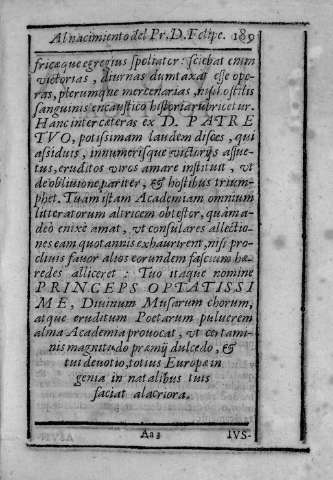 Al nacimiento del Pr. D. Felipe. 189
fricæque egregius spoliater: sciebat enim
victorias, diurnas dumtaxat esse ope-
ras, plerumque mercenarias, nisi hostilis
sanguinis encaustico historia rubricetur.
Hanc inter cæteras ex D. PATRE
TVO, potissimam laudem disces, qui
assiduis, innumerisque victorijs assue-
tus, eruditos viros amare instituit, vt
de obliuione pariter, & hostibus trium-
phet. Tuam istam Academiam omnium
litteratorum altricem obtestor, quàm a-
deò enixè amat, vt consulares allectio-
nes eam quotannis exhaurirent, nisi pro-
cliuis fauor alios eorundem fascium hæ-
redes alliceret: Tuo itaque nomine
PRINCEPS OPTATISSI
ME, Diuinum Musarum chorum,
atque eruditum Poetarum puluerem
alma Academia prouocat, vt certami-
nis magnitudo præmij dulcedo, &
tui deuotio, totius Europæ in
genia in natalibus tuis
faciat alacriora.
Aa3 IVS-